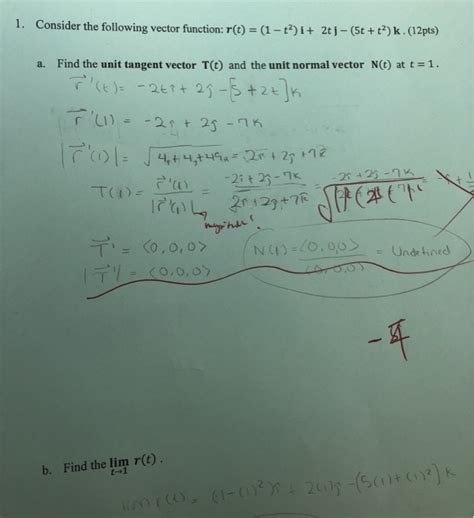 1. Consider the following vector function: r(t) = (1 − t²) i + 2t j − (5t + t²) k . (12pts)
a. Find the unit tangent vector T(t) and the unit normal vector N(t) at t = 1.
r⃗ '(t) = -2tî + 2ĵ - [5 + 2t] k
r⃗ '(1) = -2î + 2ĵ - 7k
|r⃗ '(1)| = √4î + 4ĵ + 49k = 2î + 2ĵ + 7k
T(1) = r⃗ '(1) / |r⃗ '(1)| = -2î + 2ĵ - 7k / 2î + 2ĵ + 7k = -2î + 2ĵ - 7k
magnitude!
T⃗ ' = <0,0,0> N(1) = <0,0,0> / <0,0,0> = Undefined
|T⃗ '| = <0,0,0>
b. Find the lim t→1 r(t) .
lim r(t) = (1-(1)²)î + 2(1)ĵ - (5(1) + (1)²] k